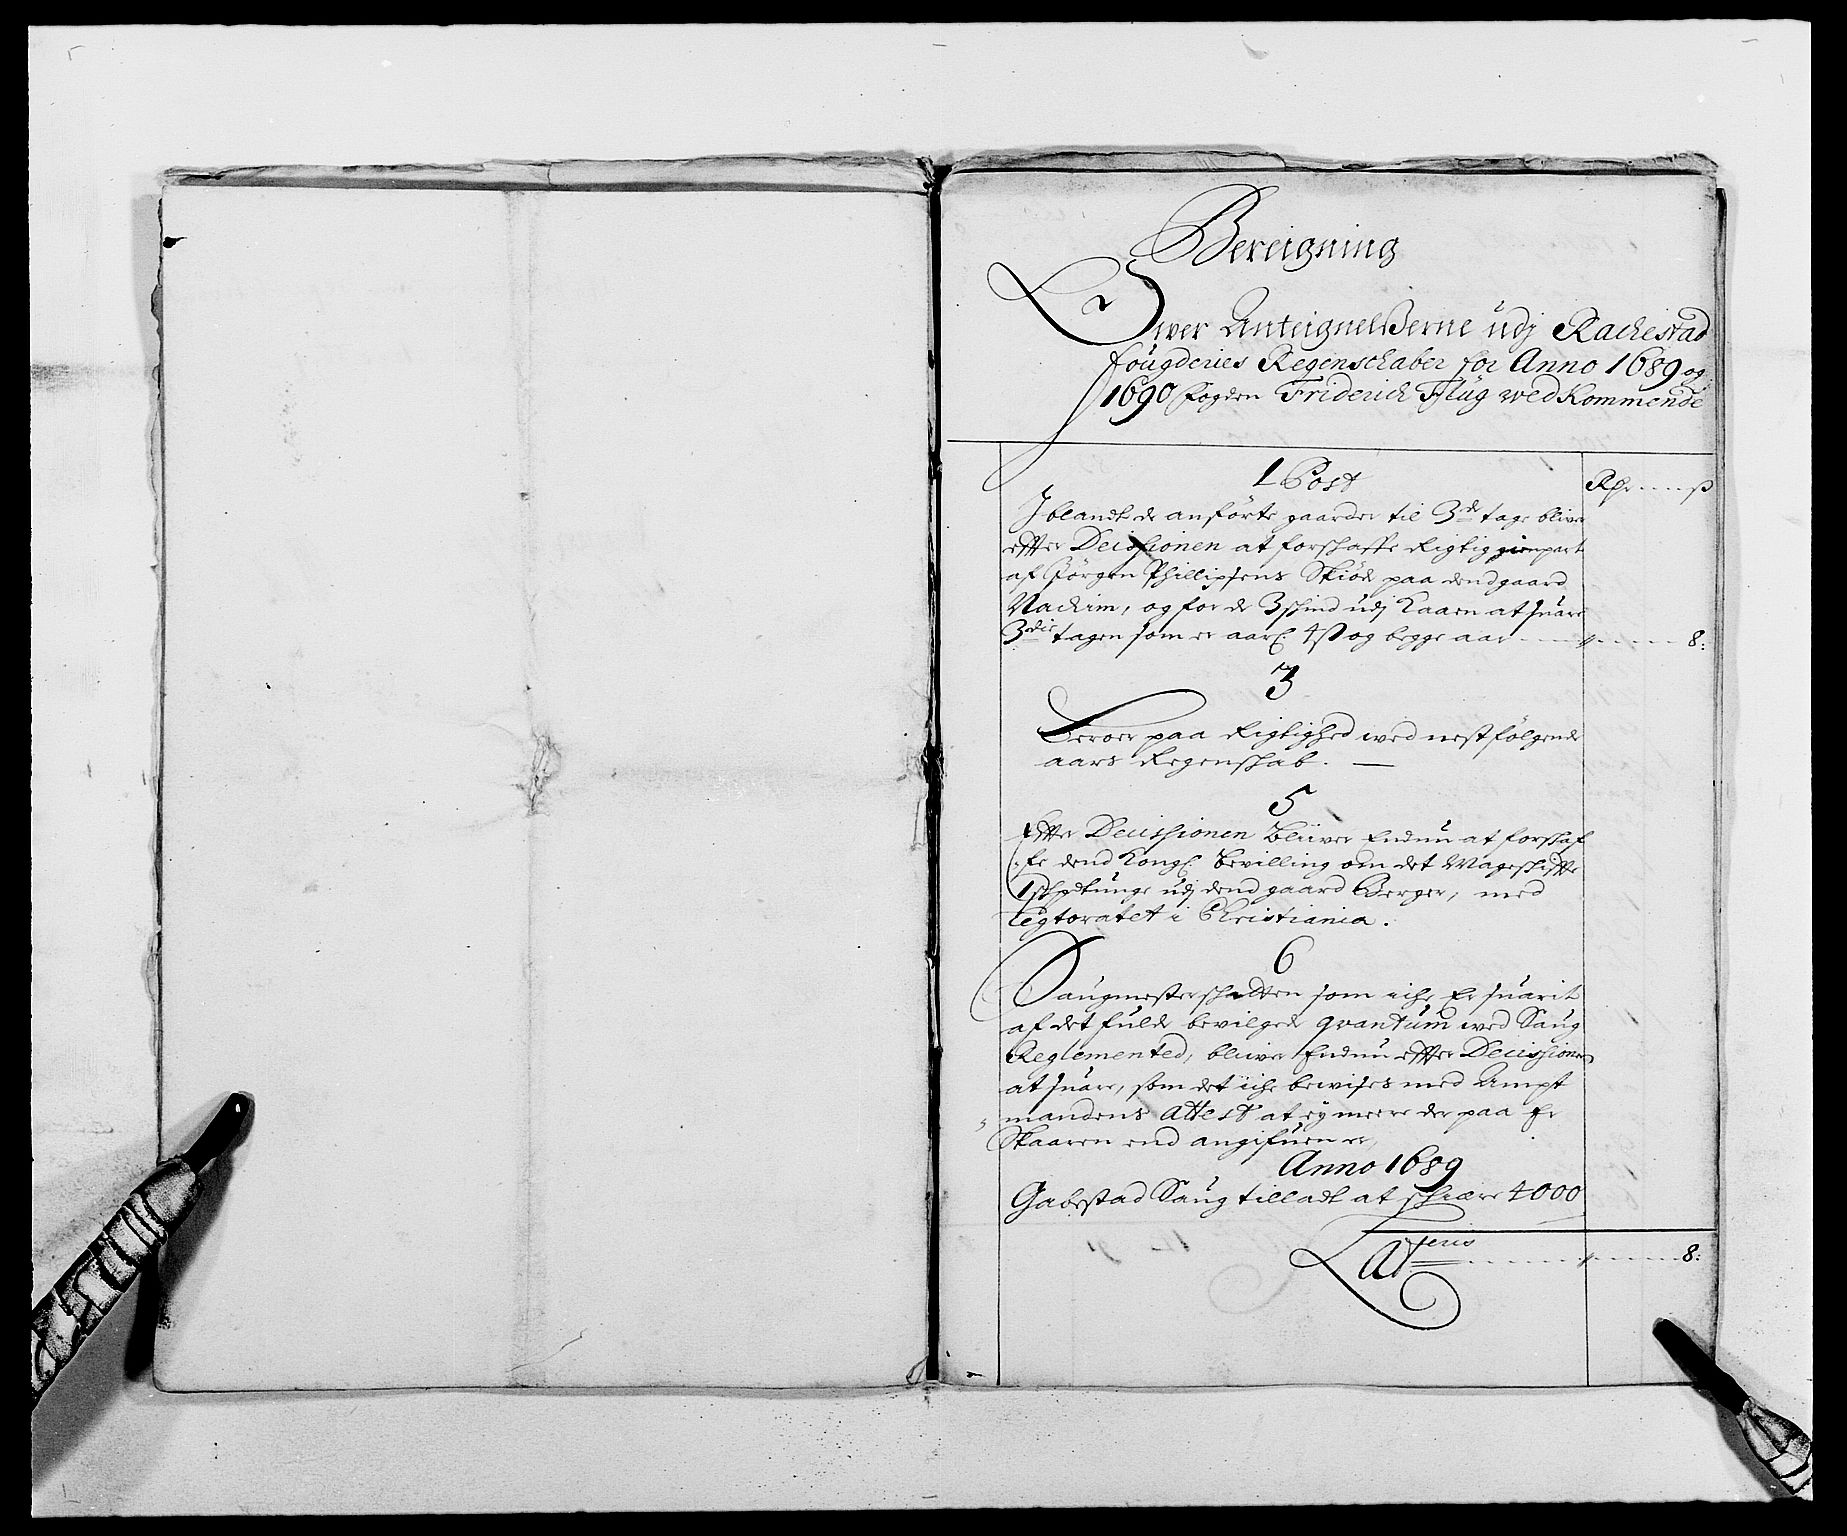 Bereigning
Ower Anteignelßerne udj Rachestad
fougderies Regenschaber for Anno 1689 og
1690 fogden Friderich Flug wedkommende
1 Post
Rdr ---- ß
Jblandt de anførte gaarder til 3de tage bliver
efter Decissionen at forschaffe Rigtig gienpart
af Jørgen Phillipsens Skiøde paa dend gaard
Nachim, og for de 3 schind udj Kaaen at suare
3die tagen som er aarl. 4 ß og begge aar ---- " ---- 8:
3
Beroer paa Rigtighed wed nestfølgende
aars Regenschab. —
5
Efter Decissionen bliver Endnu at forschaf
fe dend Kongl. bevilling om det Mageschiffte
1 schpttunge udj dend gaard Berger, med
Legtoratet i Christiania.
6
Saugmesterschatten som iche Er suarit
af det fulde bevilgede qvantum wed Saug
Reglemented, bliver Endnu efter Decissionen
at suare, som det iche bewises med Ampt
mandens Attest at ey meere der paa Er
Skaaren end angifuen er,
Anno 1689
Gabestad Saug tilladt at schiære 4000
Lateris ---- " ---- 8: